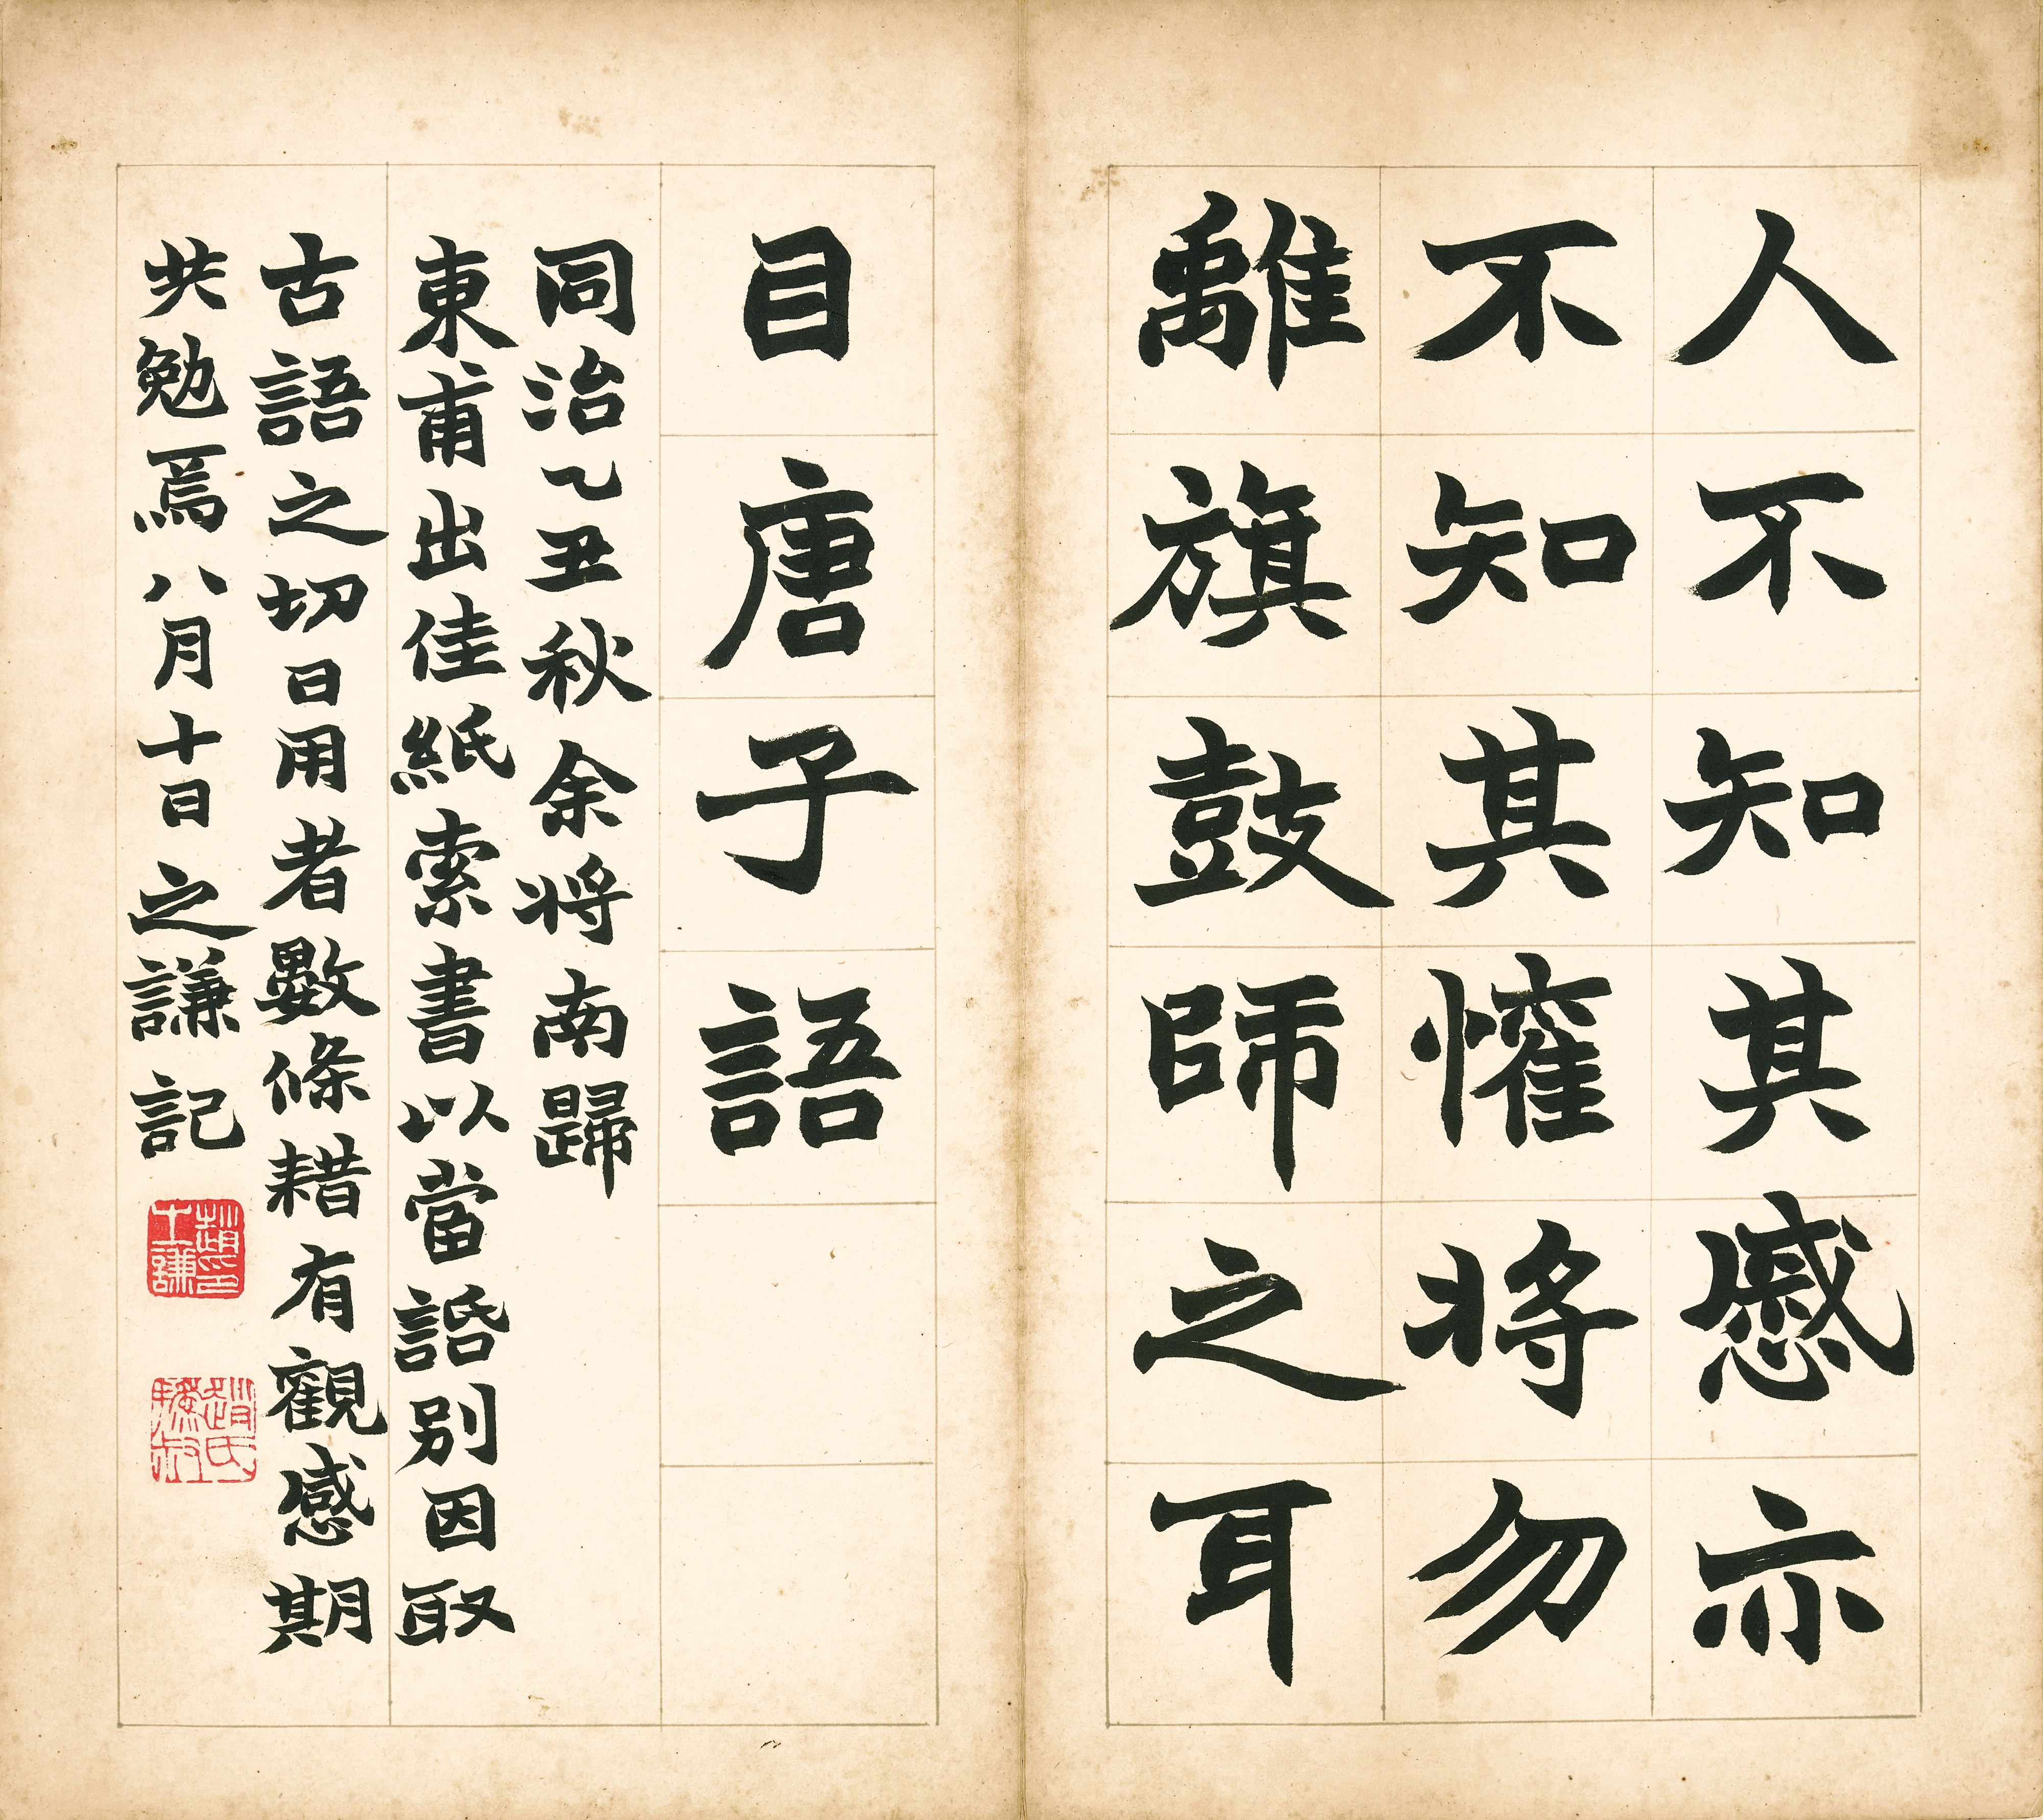 人不知其慼亦
不知其懽將勿
離旗鼓師之耳
目唐子語
同治乙丑秋余將南歸
東甫出佳紙索書以當諙別因取
古語之切日用者數條耤有觀感期
共勉焉八月十日之謙記
趙印之謙
趙氏撝叔